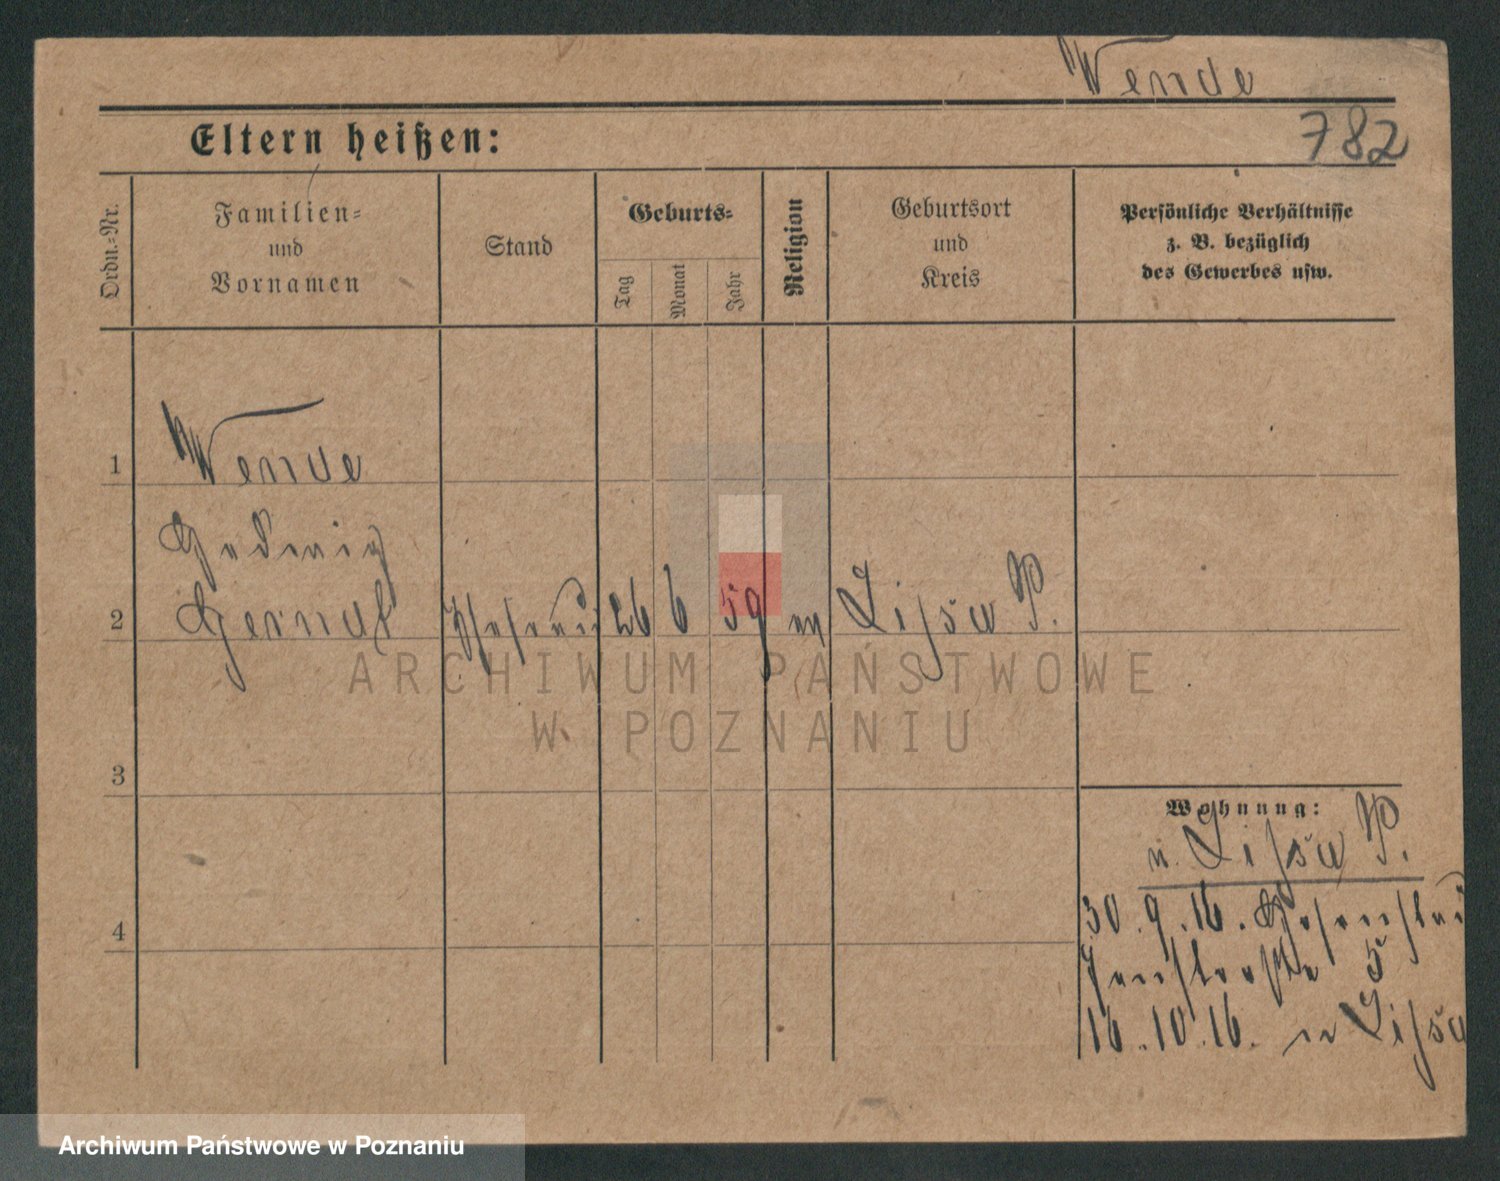 Wende
782
Eltern heißen:
Ordn.=Nr.
Familien=
und
Vornamen
Stand
Geburts=
Tag
Monat
Jahr
Religion
Geburtsort
und
Kreis
Persönliche Verhältnisse
z. B. bezüglich
des Gewerbes usw.
1
Wende
Hedwig
2
26 6 59 ev Lissa P.
3
4
Wohnung:
n. Lissa P.
30.9.16.
5
16.10.16. Lissa
ARCHIWUM PAŃSTWOWE
W POZNANIU
Archiwum Państwowe w Poznaniu